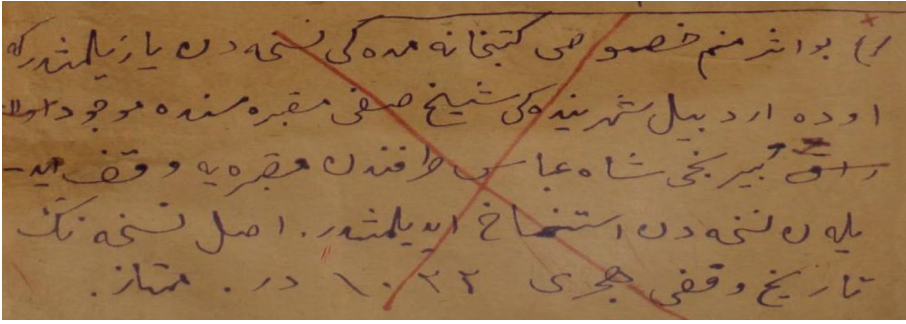 (۱) بو اثر منم خصوصی کتبخانه مده کی نسخه دن یازیلمشدر که
اوده اردبیل شهرینده کی شیخ صفی مقبره سنده موجود اولان
بیرنجی شاه عباس طرفندن مقبره یه وقف اید-
یله ن نسخه دن استنساخ ایدیلمشدر. اصل نسخه نک
تاریخ وقفی هجری ۱۰۲۲ در. ممتاز.